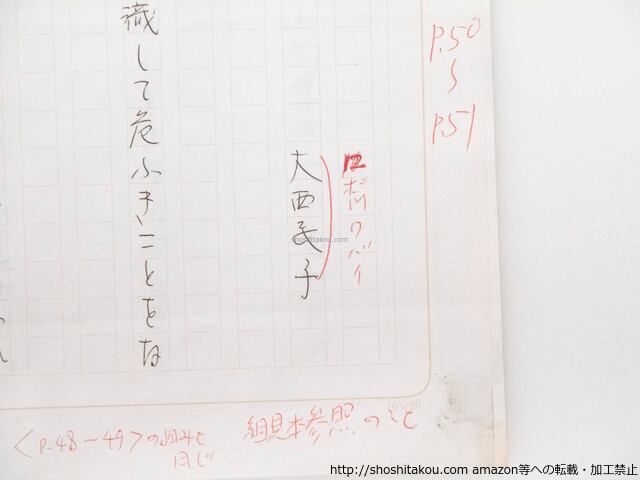 P.50
〜
P.51
12ポワリバイ
大西民子
識して危ふきことをな
<P.48〜49>の組みと
同じ
組見本参照のこと
shoshitakou.com
http://shoshitakou.com amazon等への転載・加工禁止